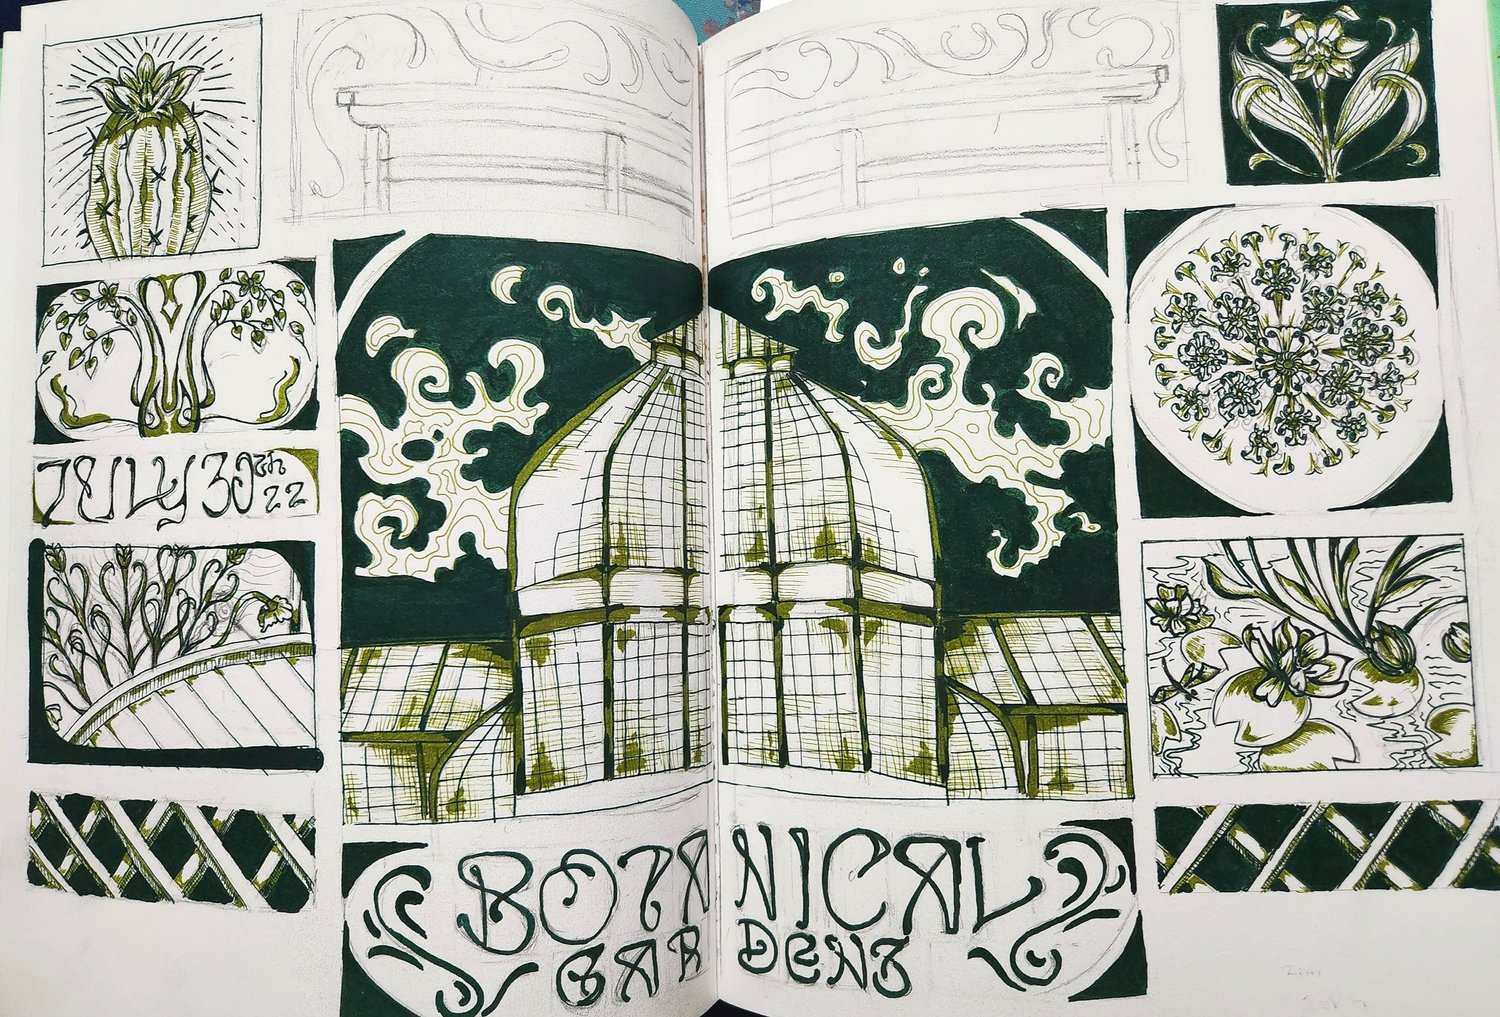 JULY 30th
22
BOTANICAL
GARDENS